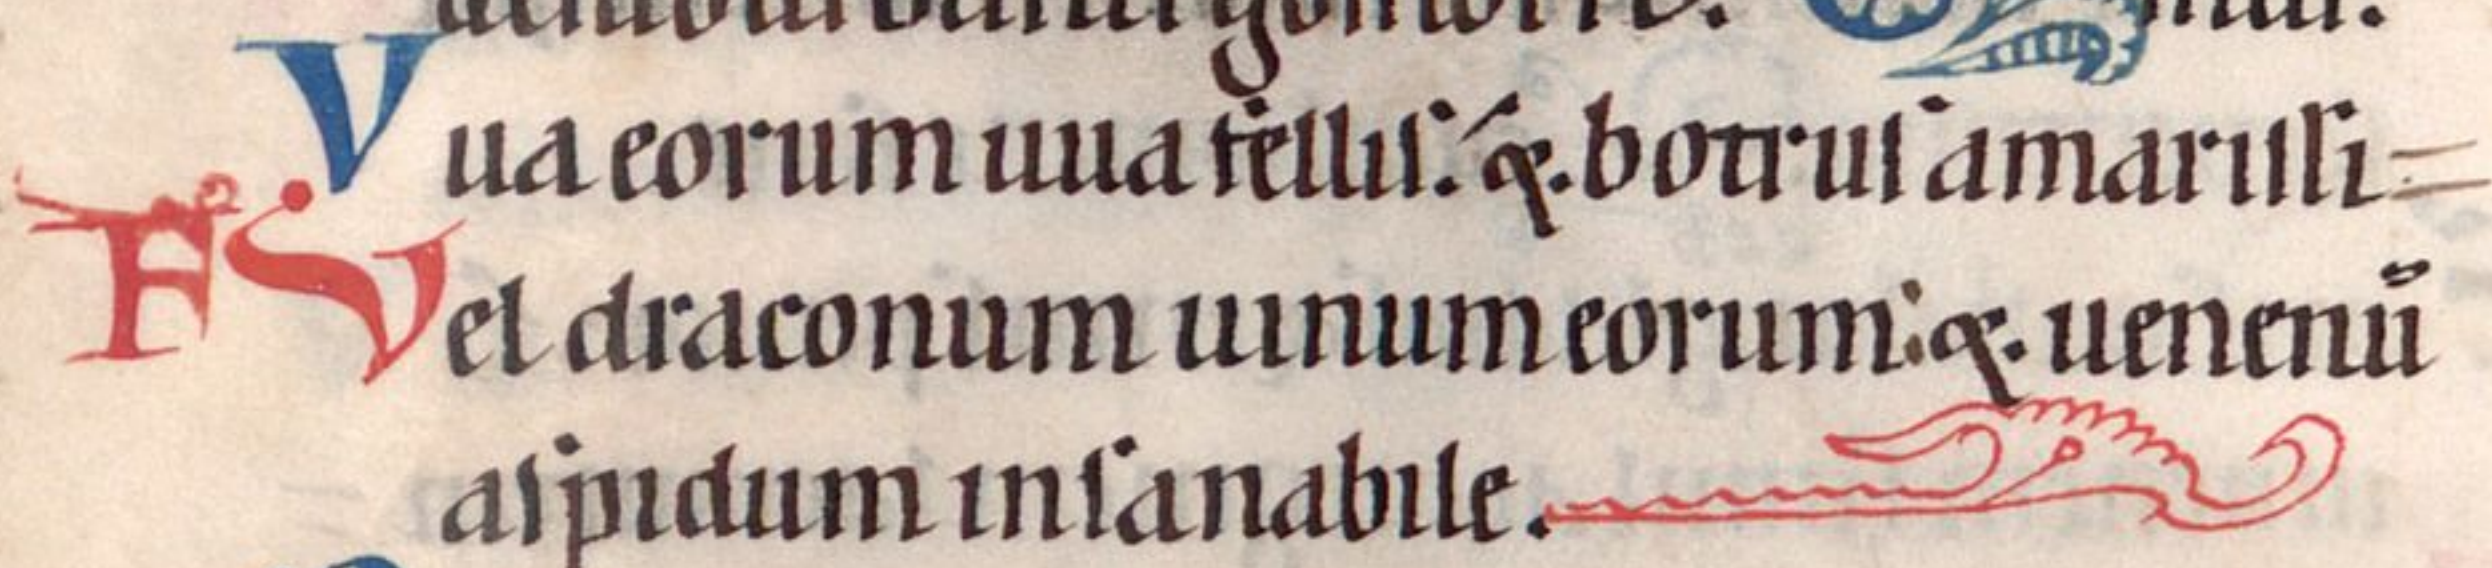 Vua eorum uua fellis: & botrus amarissi=
F Vel draconum uinum eorum: & uenenū
aspidum insanabile.